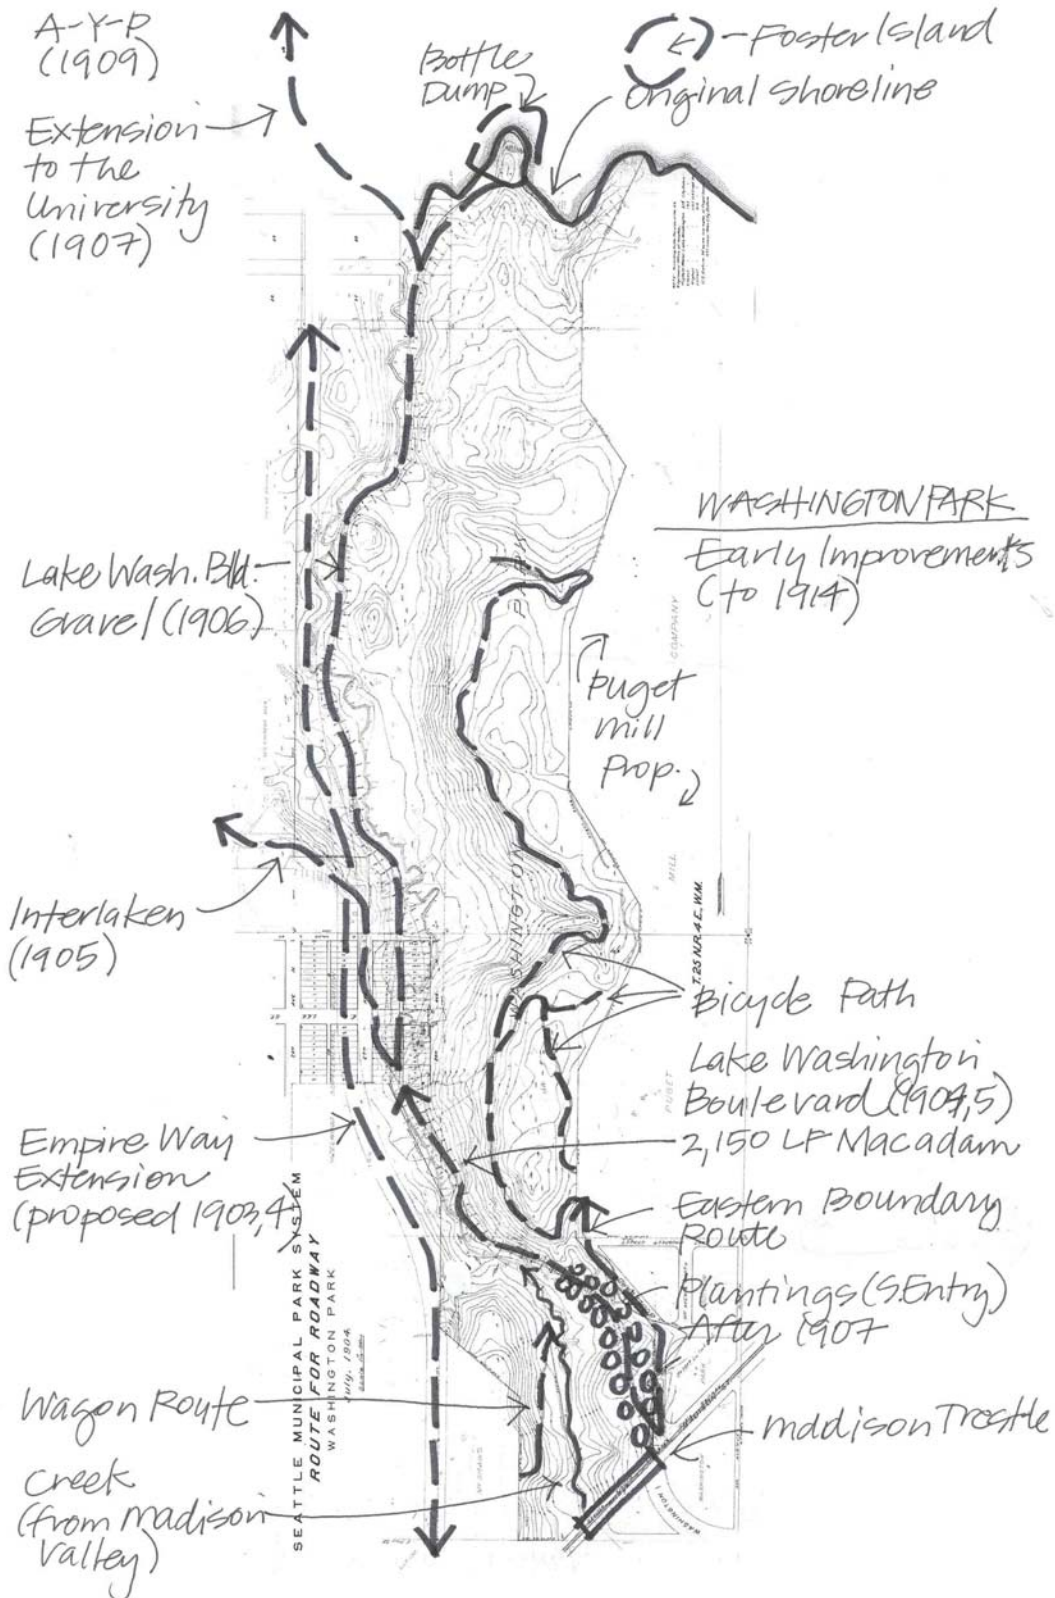 A-Y-P
(1909)
Extension
to the
University
(1907)
Bottle
Dump
Foster Island
Original Shoreline
WASHINGTON PARK
Early Improvements
(to 1914)
Lake Wash. Blvd.
Gravel (1906)
Puget
Mill
Prop.
PARK
WASHINGTON
COMPANY
MILL
PUGET
T.25 N.R.4 E.W.M.
Interlaken
(1905)
Bicycle Path
Lake Washington
Boulevard (1904,5)
2,150 LF Macadam
Empire Way
Extension
(proposed 1903,4)
Eastern Boundary
Route
Plantings (S. Entry)
After 1907
SEATTLE MUNICIPAL PARK SYSTEM
ROUTE FOR ROADWAY
WASHINGTON PARK
July, 1904
Wagon Route
Madison Trestle
Creek
(from Madison
Valley)
WASHINGTON